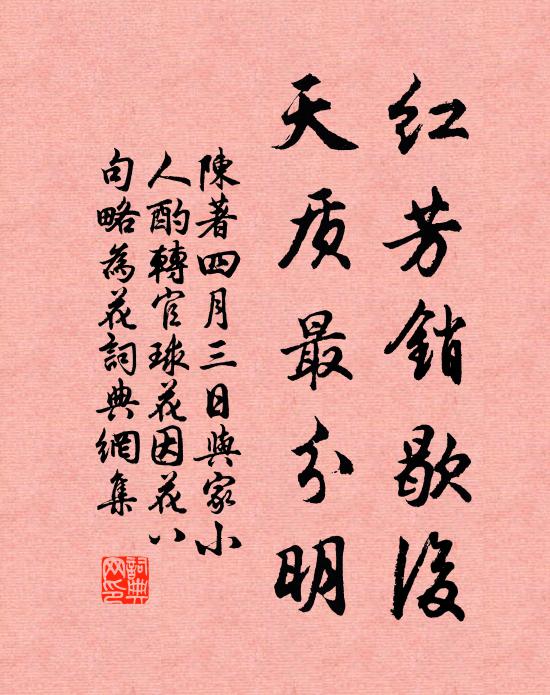 红芳銷歇後
天质最分明
陳著四月三日與家小
人酌轉官球花因花八
句略為花詞典網集
詞典网印